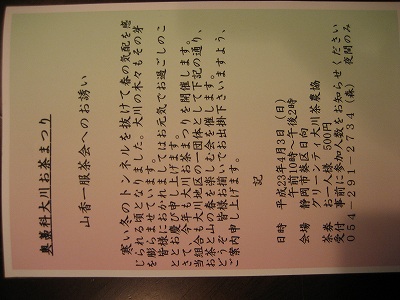 奥藁科大川お茶まつり
山香一服茶会へのお誘い
寒い冬のトンネルを抜けて春の気配を感
じられる頃となりました。大川の木々もその芽
を膨らませています。
皆様におかれましてはお元気でお過ごしのこ
とお慶び申し上げます。
さて、今年も大川お茶まつりを開催します。
当組合も大川地区の一団体として下記の通り、
お茶と山の春を楽しむ会を催します。
どうぞ、皆様お揃いでお出掛下さいますよう、
ご案内申し上げます。
記
日時 平成23年4月3日(日)
午前10時~午後2時
会場 静岡市葵区日向
グリーンティ大川茶農協
茶券 お一人様、500円
受付 事前に参加人数をお知らせください
054-291-2734(森)夜間のみ